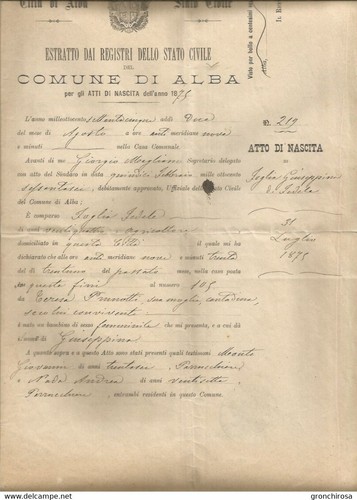 Città di Alba
Stato Civile
ESTRATTO DAI REGISTRI DELLO STATO CIVILE
DEL
COMUNE DI ALBA
per gli ATTI DI NASCITA dell'anno 1875
N. 219
ATTO DI NASCITA
di
Soglia Giuseppina
di Fedele
31
Luglio
1875
L'anno milleottocento settantacinque addì Due
del mese di Agosto a ore anti meridiane nove
e minuti nella Casa Comunale.
Avanti di me Giorgio Segretario delegato
con atto del Sindaco in data quindici Febbraio mille ottocento
debitamente approvato, Uffiziale dello Stato Civile
del Comune di Alba;
È comparso Soglia Fedele di
anni
domiciliato in questa Città il quale mi ha
dichiarato che alle ore anti meridiane nove e minuti trenta
del dì trentuno del passato mese, nella casa posta
in questa fini al numero 105
da Teresa Prunotti, sua moglie, contadina,
seco lui convivente
è nato un bambino di sesso femminile che mi presenta, e a cui dà
il nome di Giuseppina
A quanto sopra e a questo Atto sono stati presenti quali testimoni
Giovanni di anni Parrucchiere
e Andrea di anni ventisette
Parrucchiere, entrambi residenti in questo Comune.
https://www.delcampe.net
gronchirosa